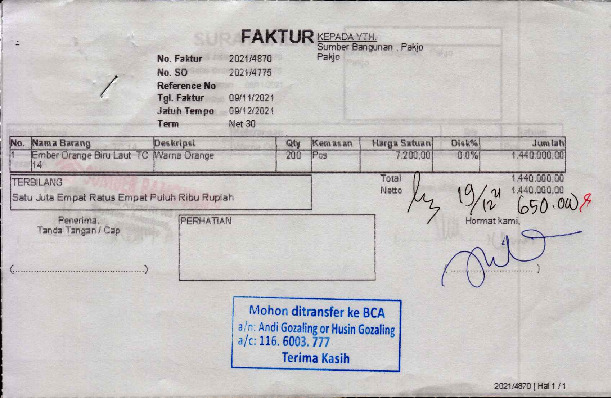 FAKTUR
KEPADA YTH.
Sumber Bangunan , Pakjo
Pakjo
No. Faktur 2021/4870
No. SO 2021/4775
Reference No
Tgl. Faktur 09/11/2021
Jatuh Tempo 09/12/2021
Term Net 30
No. Nama Barang Deskripsi Qty Kemasan Harga Satuan Disk% Jumlah
1 Ember Orange Biru Laut TC 14 Warna Orange 200 Pcs 7.200,00 0.0% 1.440.000,00
Total 1.440.000,00
Netto 1.440.000,00
TERBILANG
Satu Juta Empat Ratus Empat Puluh Ribu Rupiah
19/12 21
650.000
Penerima,
Tanda Tangan / Cap
PERHATIAN
Hormat kami,
(..............................)
(..............................)
Mohon ditransfer ke BCA
a/n: Andi Gozaling or Husin Gozaling
a/c: 116. 6003. 777
Terima Kasih
2021/4870 | Hal 1 / 1